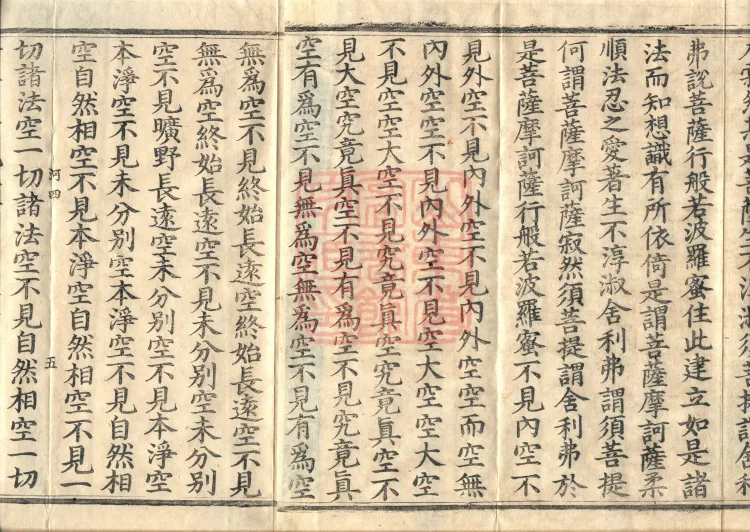 弗說菩薩行般若波羅蜜住此建立如是諸
法而知想識有所依倚是謂菩薩摩訶薩柔
順法忍之愛著生不淳淑舍利弗謂須菩提
何謂菩薩摩訶薩寂然須菩提謂舍利弗於
是菩薩摩訶薩行般若波羅蜜不見內空不
見外空不見內外空不見內外空空而空無
內外空空不見內外空不見空大空空大空
不見空空大空不見究竟真空究竟真空不
見大空究竟真空不見有為空不見究竟真
空有為空不見無為空無為空不見有為空
無為空不見終始長遠空終始長遠空不見
無為空終始長遠空不見未分別空未分別
空不見曠野長遠空未分別空不見本淨空
本淨空不見未分別空本淨空不見自然相
空自然相空不見本淨空自然相空不見一
河四 五
切諸法空一切諸法空不見自然相空一切